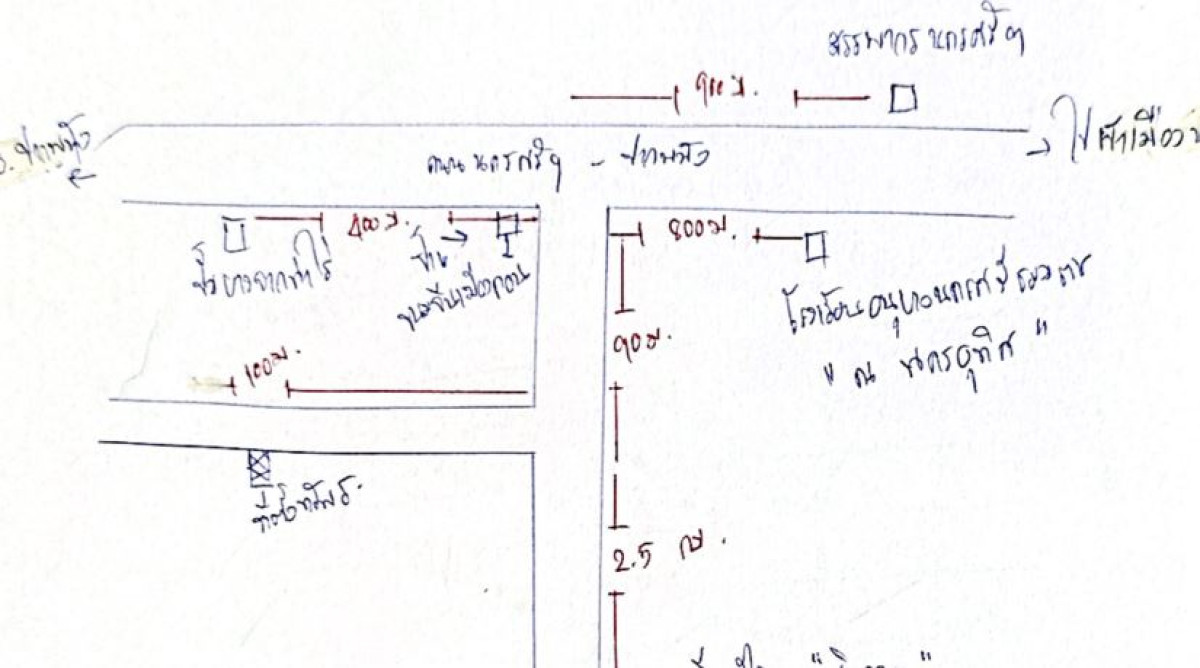 สรรพากร นครศรีฯ
900 ม.
อ. ปากพนัง
ถนน นครศรีฯ - ปากพนัง
ไปตัวเมือง
400 ม.
800 ม.
ปั๊มบางจาก
ร้าน
ขนมจีนเมืองคอน
โรงเรียนอนุบาลนครศรีธรรมราช
" ณ นครอุทิศ "
90 ม.
100 ม.
ที่ตั้งทรัพย์
2.5 กม.